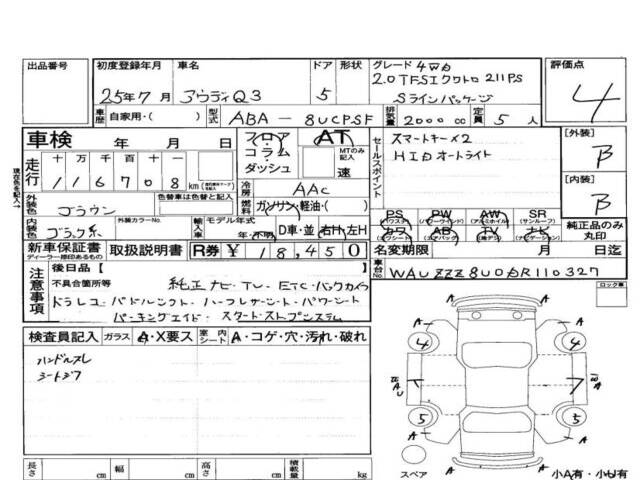 出品番号
初度登録年月
25年7月
車名
アウディQ3
ドア
5
形状
グレード 4WD
2.0TFSIクワトロ 211PS
Sラインパッケージ
評価点
4
車歴
自家用・( )
型式
ABA-8UCPSF
排気量
2000cc
定員
5人
車検 年 月 日
走行
十 万 千 百 十
1 1 6 7 0 8 km
現在色を記入→
外装色
ブラウン
色替車は色替と記入
内装色
ブラック系
外装カラーNo.
フロア
コラム
ダッシュ
AT
MTのみ記入
速
冷房
AAC
燃料
ガソリン・軽油・( )
輸入車
モデル年式
年・不明
D車・並
右H 左H
セールスポイント
スマートキー×2
HIDオートライト
[外装]
B
[内装]
B
PS PW AW SR
(パワステ) (パワーウインド) (アルミホイル) (サンルーフ)
カワ AB TV ナビ
(エアバッグ) (ナビゲーション)
純正品のみ丸印
新車保証書
ディーラー捺印あるもの
取扱説明書
R券 ¥18,450
名変期限 月 日迄
車台No.
WAUZZZ8U0DR110327
注意事項
後日品〔 〕
不具合箇所等
純正ナビ・TV・ETC・バックカメラ
ドラレコ・パドルシフト・ハーフレザーシート・パワーシート
パーキングエイド・スタートストップシステム
ロック車
検査員記入
ガラス
A・X要ス
室内シート
A・コゲ・穴・汚れ・破れ
ハンドルスレ
シートシワ
A
A A
4 4
A A
A U
7
5 5
A A
A
スペア
小A有・小U有
長さ cm
幅 cm
高さ cm
積載量 kg